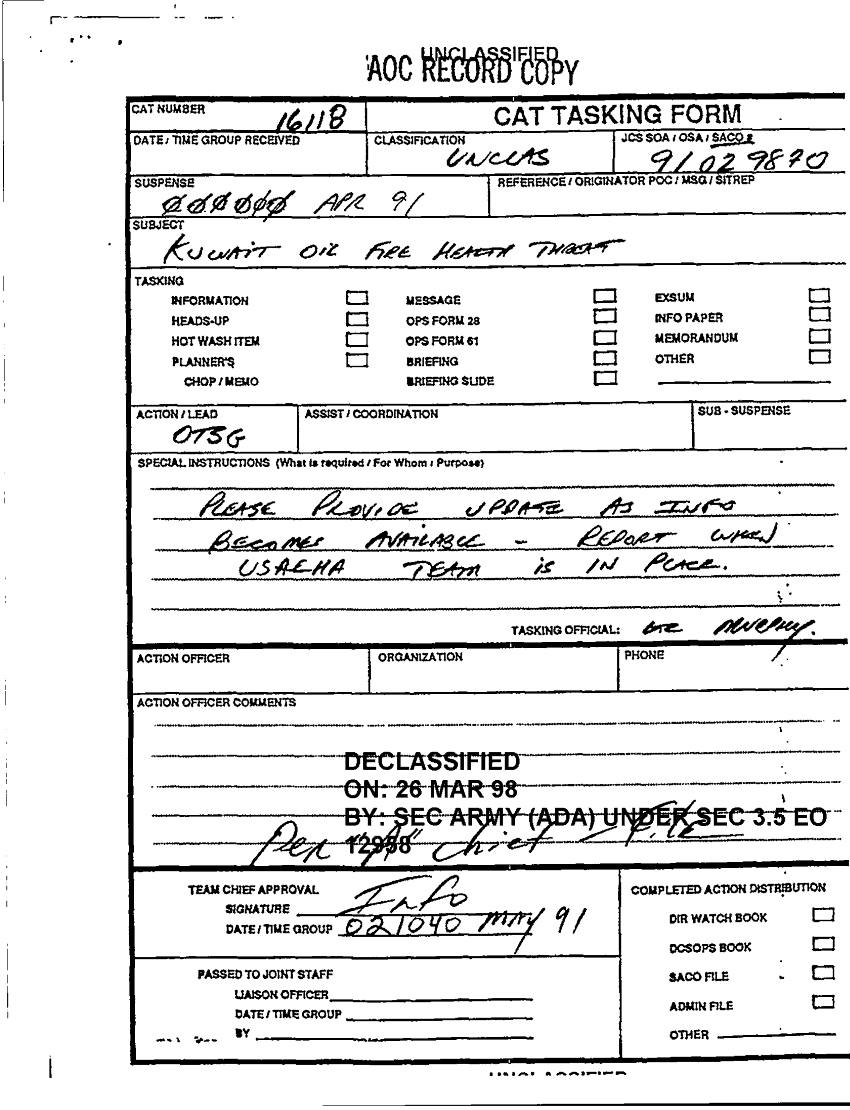 UNCLASSIFIED
AOC RECORD COPY
CAT NUMBER 16118
CAT TASKING FORM
DATE / TIME GROUP RECEIVED
CLASSIFICATION
UNCLAS
JCS SOA / OSA / SACO #
91029870
SUSPENSE
000000 APR 91
REFERENCE / ORIGINATOR POC / MSG / SITREP
SUBJECT
KUWAIT OIL FIRE HEALTH THREAT
TASKING
INFORMATION MESSAGE EXSUM
HEADS-UP OPS FORM 28 INFO PAPER
HOT WASH ITEM OPS FORM 61 MEMORANDUM
PLANNER'S BRIEFING OTHER
CHOP / MEMO BRIEFING SLIDE
ACTION / LEAD
OTSG
ASSIST / COORDINATION
SUB - SUSPENSE
SPECIAL INSTRUCTIONS (What is required / For Whom / Purpose)
PLEASE PROVIDE UPDATE AS INFO
BECOMES AVAILABLE - REPORT WHEN
USAEHA TEAM IS IN PLACE.
TASKING OFFICIAL: MURPHY.
ACTION OFFICER
ORGANIZATION
PHONE
ACTION OFFICER COMMENTS
DECLASSIFIED
ON: 26 MAR 98
BY: SEC ARMY (ADA) UNDER SEC 3.5 EO
12958
Per "A" Chief - File
TEAM CHIEF APPROVAL
SIGNATURE Info
DATE / TIME GROUP 021040 MAY 91
PASSED TO JOINT STAFF
LIAISON OFFICER
DATE / TIME GROUP
BY
COMPLETED ACTION DISTRIBUTION
DIR WATCH BOOK
DCSOPS BOOK
SACO FILE
ADMIN FILE
OTHER
UNCLASSIFIED